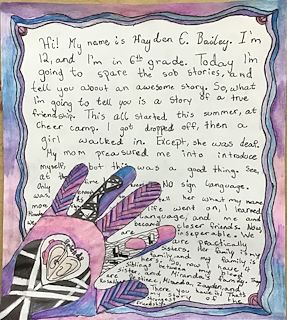 Hi! My name is Hayden E. Bailey. I'm
12, and I'm in 6th grade. Today I'm
going to spare the sob stories, and
tell you about an awesome story. So, what
I'm going to tell you is a story of a true
friendship. This all started this summer, at
cheer camp. I got dropped off, then a
girl walked in. Except, she was deaf.
My mom preasured me into introduce
myself, but this was a good thing. See,
at time
Only NO sign language.
was, tell her what my name
life went on, I learned
language, and me and
became closer friends. Now
inseperable. We
are practically
sisters. Her family is my
family and my family is
her's now. I have
siblings between my
sister and Miranda's family.
Miranda, Zayden, and
There
story of the
strongest
friendship